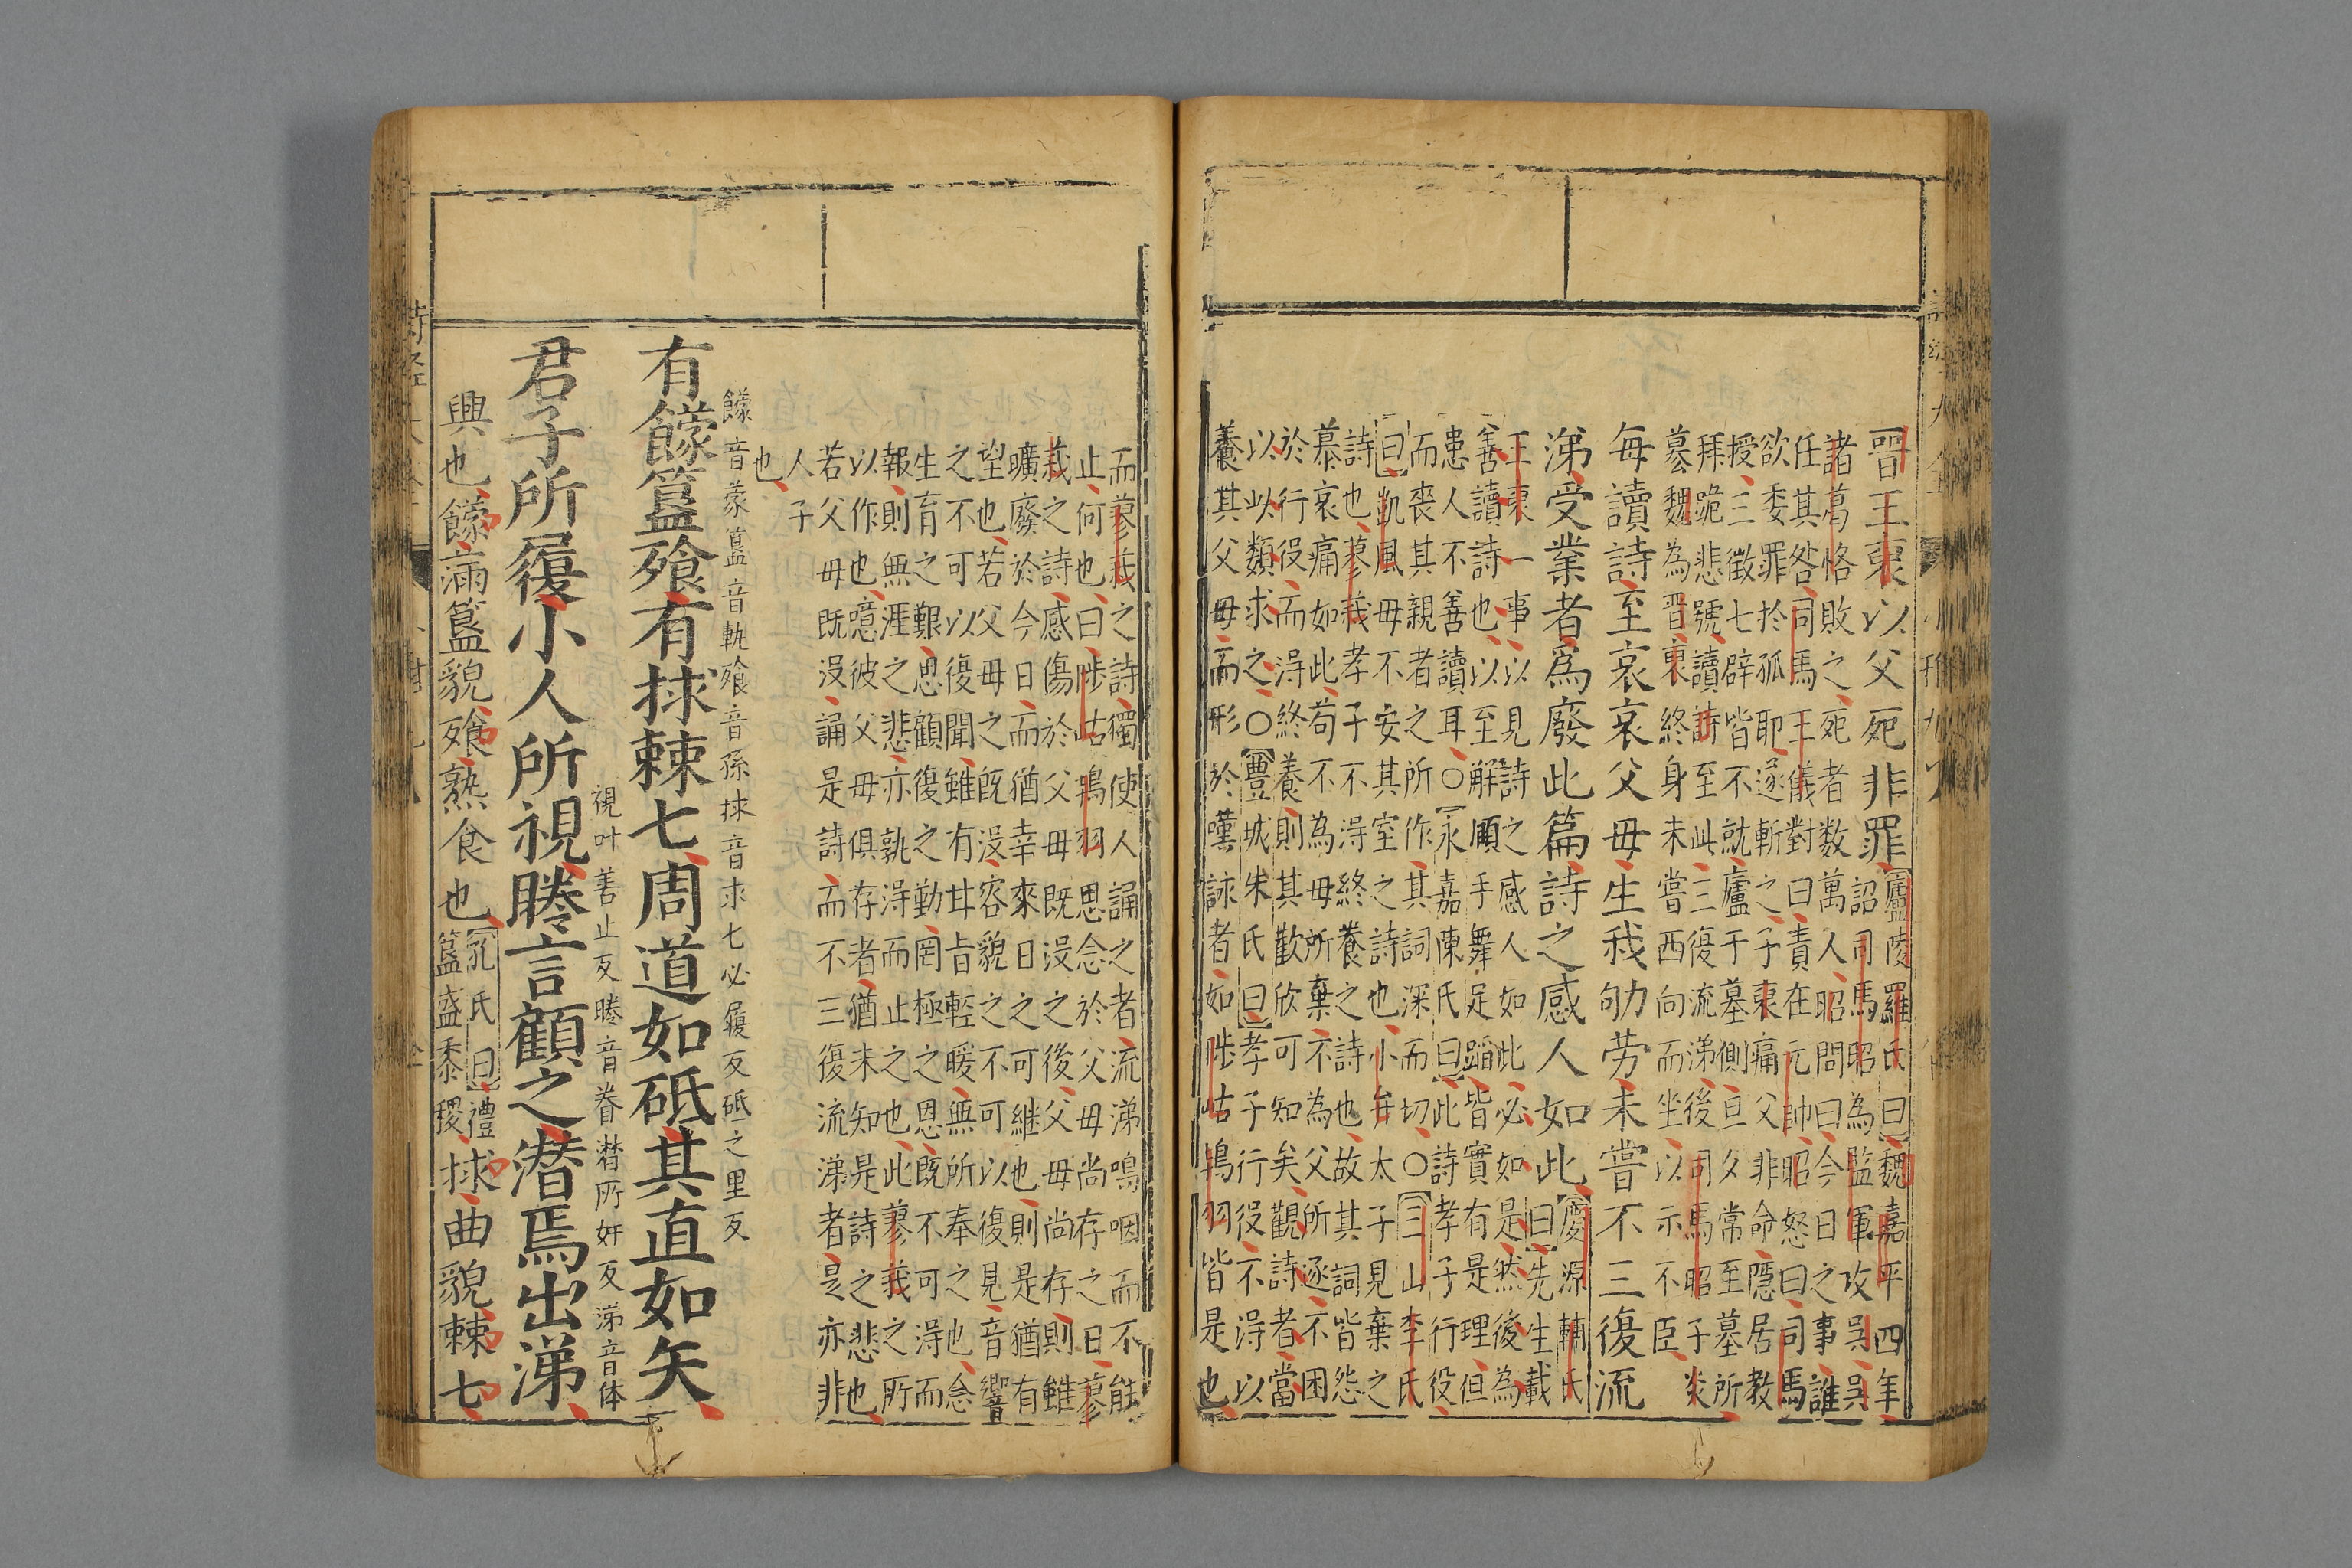 晉王裒以父死非罪廬陵羅氏曰魏嘉平四年
詔司馬昭為監軍攻吳吳
諸葛恪敗之死者数萬人昭問曰今日之事誰
任其咎司馬王儀對曰責在元帥昭怒曰司馬
欲委罪於孤耶遂斬之子裒痛父非命隱居教
授三徵七辟皆不就廬于墓側旦夕常至墓所
拜跪悲號讀詩至此三復流涕後司馬昭子炎
簒魏為晉裒終身未嘗西向而坐以示不臣
每讀詩至哀哀父母生我劬劳未嘗不三復流
涕受業者爲廢此篇詩之感人如此慶源輔氏
曰先生載
王裒一事以見詩之感人如此必如是然後為
善讀詩也以至解頤手舞足蹈皆實有是理但
患人不善讀耳○永嘉陳氏曰此詩孝子行役
而喪其親者之所作其詞深而切○三山李氏
曰凱風母不安其室之詩也小弁太子見棄之
詩也蓼莪孝子不得終養之詩也故其詞皆怨
慕哀痛如此苟不為母所棄不為父所逐不困
於行役而得終養則其歡欣可知矣觀詩者當
以此類求之○豐城朱氏曰孝子行役不得以
養其父母而形於嘆詠者如陟岵鴇羽皆是也
而蓼莪之詩獨使人誦之者流涕嗚咽而不能
止何也曰陟岵鴇羽思念於父母尚存之日蓼
莪之詩感傷於父母既没之後父母尚存則雖
曠廢於今日而猶幸來日之可継也則是猶有
望也若父母之既没容貌之不可以復見音響
之不可以復聞雖有甘旨輕暖無所奉之也念
生育之艱思顧復之勤罔極之恩既不可得而
報則無涯之悲亦孰得而止之也此蓼莪之所
以作也噫彼父母俱存者猶未知是詩之悲也
若父母既没誦是詩而不三復流涕者是亦非
人子
也
饛音蒙簋音軌飧音孫捄音求七必履反砥之里反
有饛簋飧有捄棘七周道如砥其直如矢
視叶善止反睠音眷潸所奸反涕音体
君子所履小人所視睠言顧之潸焉出涕
興也饛滿簋貌飧熟食也孔氏曰禮
簋盛黍稷捄曲貌棘七